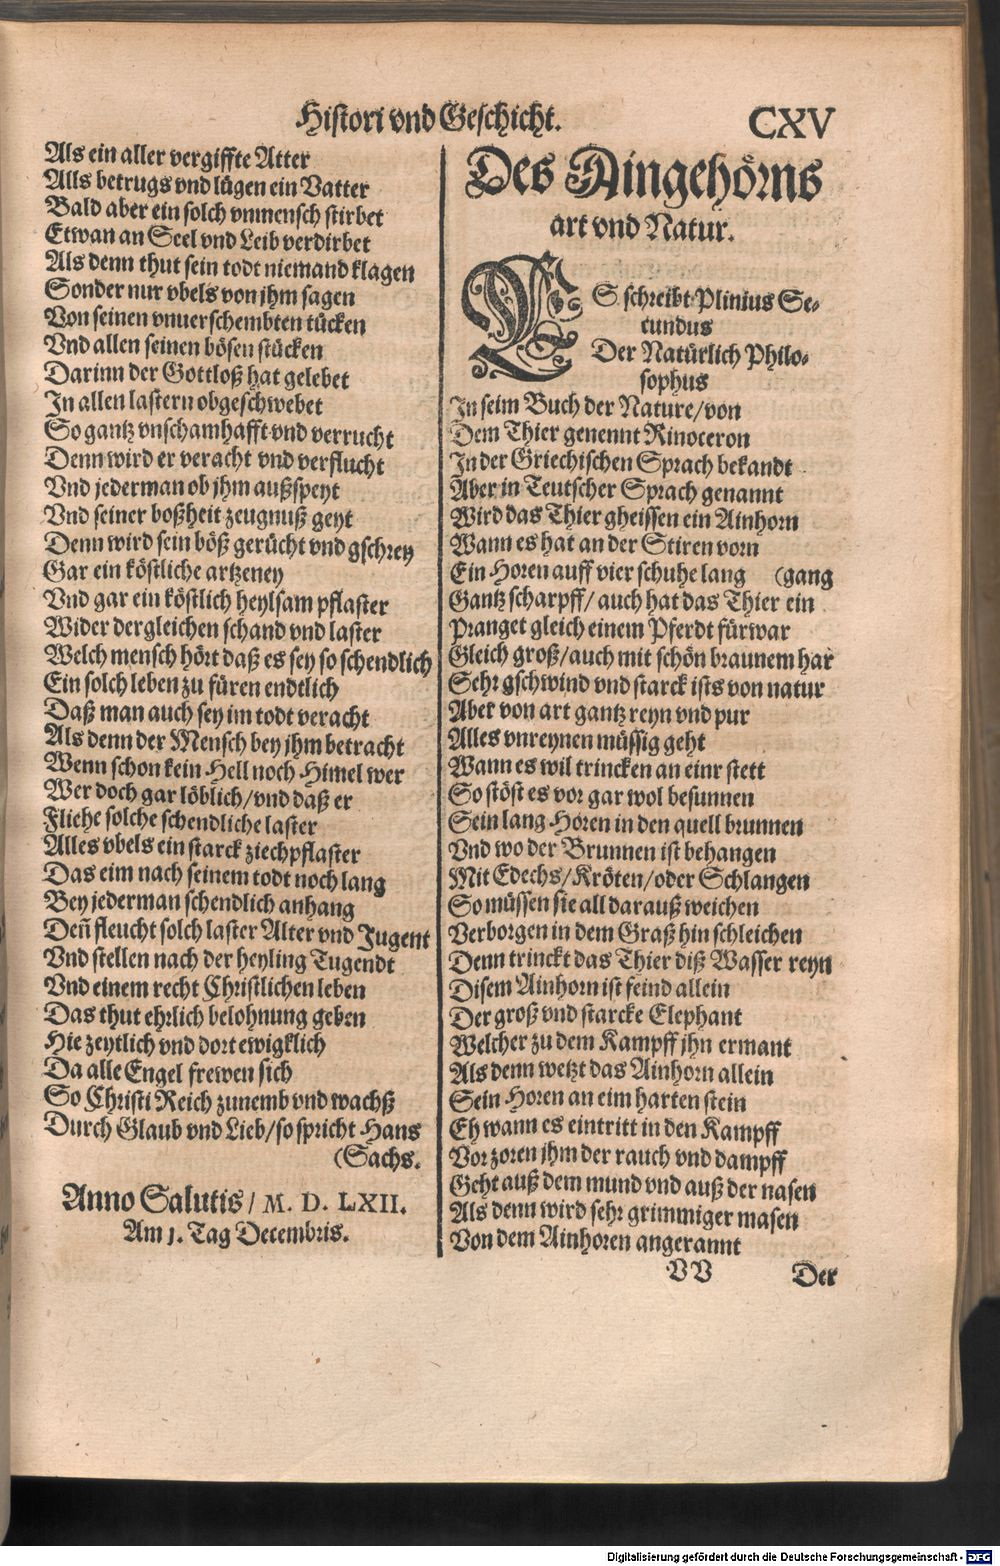 Histori vnd Geschicht.
CXV
Als ein aller vergiffte Atter
Alls betrugs vnd lügen ein Vatter
Bald aber ein solch vnmensch stirbet
Etwan an Seel vnd Leib verdirbet
Als denn thut sein todt niemand klagen
Sonder nur vbels von jhm sagen
Von seinen vnuerschembten tücken
Vnd allen seinen bösen stücken
Darinn der Gottloß hat gelebet
In allen lastern obgeschwebet
So gantz vnschamhafft vnd verrucht
Denn wird er veracht vnd verflucht
Vnd jederman ob jhm außspeyt
Vnd seiner boßheit zeugnuß geyt
Denn wird sein böß gerücht vnd gschrey
Gar ein köstliche artzeney
Vnd gar ein köstlich heylsam pflaster
Wider dergleichen schand vnd laster
Welch mensch hört daß es sey so schendlich
Ein solch leben zu füren endtlich
Daß man auch sey im todt veracht
Als denn der Mensch bey jhm betracht
Wenn schon kein Hell noch Himel wer
Wer doch gar löblich/vnd daß er
Fliehe solche schendliche laster
Alles vbels ein starck ziechpflaster
Das eim nach seinem todt noch lang
Bey jederman schendlich anhang
Deñ fleucht solch laster Alter vnd Jugent
Vnd stellen nach der heyling Tugendt
Vnd einem recht Christlichen leben
Das thut ehrlich belohnung geben
Hie zeytlich vnd dort ewigklich
Da alle Engel frewen sich
So Christi Reich zunemb vnd wachß
Durch Glaub vnd Lieb/so spricht Hans
(Sachs.
Anno Salutis/ M. D. LXII.
Am 1. Tag Decembris.
Des Aingehörns
art vnd Natur.
ES schreibt Plinius Se-
cundus
Der Natürlich Philo-
sophus
In seim Buch der Nature/von
Dem Thier genennt Rinoceron
In der Griechischen Sprach bekandt
Aber in Teutscher Sprach genannt
Wird das Thier gheissen ein Ainhorn
Wann es hat an der Stiren vorn
Ein Horen auff vier schuhe lang (gang
Gantz scharpff/ auch hat das Thier ein
Pranget gleich einem Pferdt fürwar
Gleich groß/auch mit schön braunem har
Sehr gschwind vnd starck ists von natur
Aber von art gantz reyn vnd pur
Alles vnreynen müssig geht
Wann es wil trincken an einr stett
So stöst es vor gar wol besunnen
Sein lang Horen in den quell brunnen
Vnd wo der Brunnen ist behangen
Mit Edechs/Kröten/oder Schlangen
So müssen sie all darauß weichen
Verborgen in dem Graß hin schleichen
Denn trinckt das Thier diß Wasser reyn
Disem Ainhorn ist feind allein
Der groß vnd starcke Elephant
Welcher zu dem Kampff jhn ermant
Als denn wetzt das Ainhorn allein
Sein Horen an eim harten stein
Eh wann es eintritt in den Kampff
Vor zoren jhm der rauch vnd dampff
Geht auß dem mund vnd auß der nasen
Als denn wird sehr grimmiger masen
Von dem Ainhoren angerannt
VV
Der
Digitalisierung gefördert durch die Deutsche Forschungsgemeinschaft - DFG